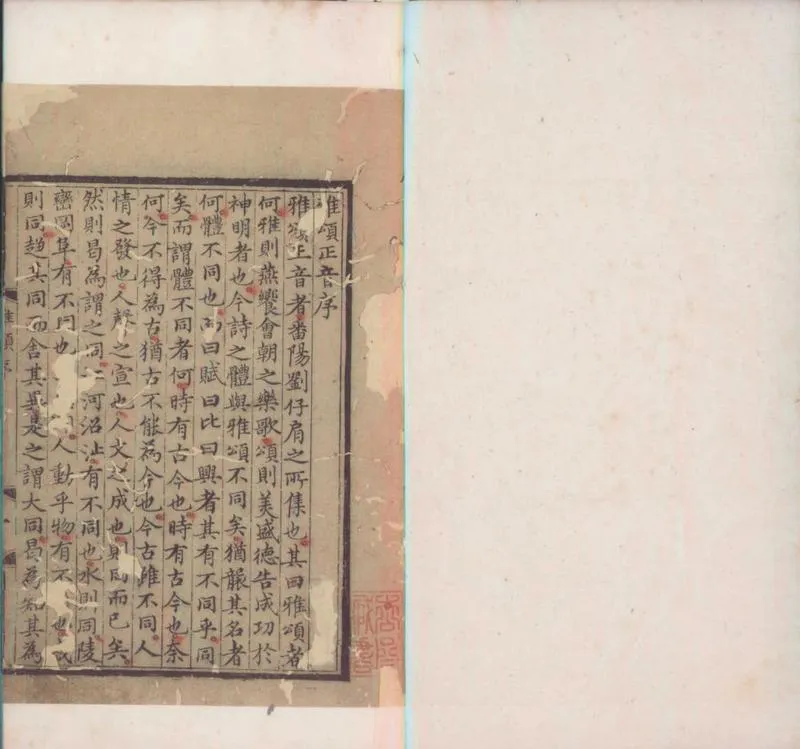 雅頌正音序
雅頌正音者番陽劉仔肩之所集也其曰雅頌者
何雅則燕饗會朝之樂歌頌則美盛德告成功於
神明者也今詩之體與雅頌不同矣猶襲其名者
何體不同也而曰賦曰比曰興者其有不同乎同
矣而謂體不同者何時有古今也時有古今也奈
何今不得為古猶古不能為今也今古雖不同人
情之發也人聲之宣也人文之成也則同而已矣
然則曷為謂之同江河沼沚有不同也水則同陵
巒岡阜有不同也人動乎物有不也
則同趨其同而舍其異是之謂大同曷為知其為
雅頌序